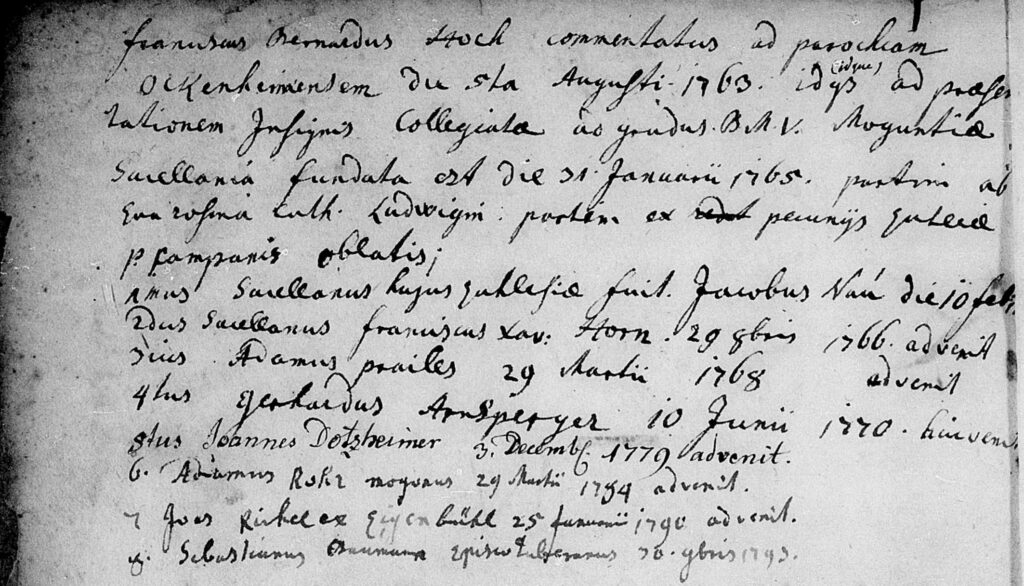 Franciscus Bernardus Hoch commentatus ad parochiam
Ockenheimensem die 5ta Augusti 1763. idq3 (idque) ad præsen
tationem Insignis Collegiatæ ad gradus B.M.V. Moguntiæ
Sacellania fundata est die 31 Januarii 1765. partim ab
Eva rosina Cath. Ludwigin: partim ex pecunijs
p. campanis oblatis;
1mus Sacellanus hujus fuit. Jacobus Naú die 10 feb
2dus Sacellanus franciscus Xav: Horn. 29 8bris 1766. advenit
3ius Adamus 29 Martii 1768 advenit
4tus Gerhardus Arnsperger 10 Junii 1770. huc venit
5tus Joannes Dotzheimer 3. Decemb. 1779 advenit.
6. Adamus Rohr mogonus 29 Martii 1784 advenit.
7 Joas ex 25 Januarii 1790 advenit.
8. Sebastianus 30. 9bris 1793.